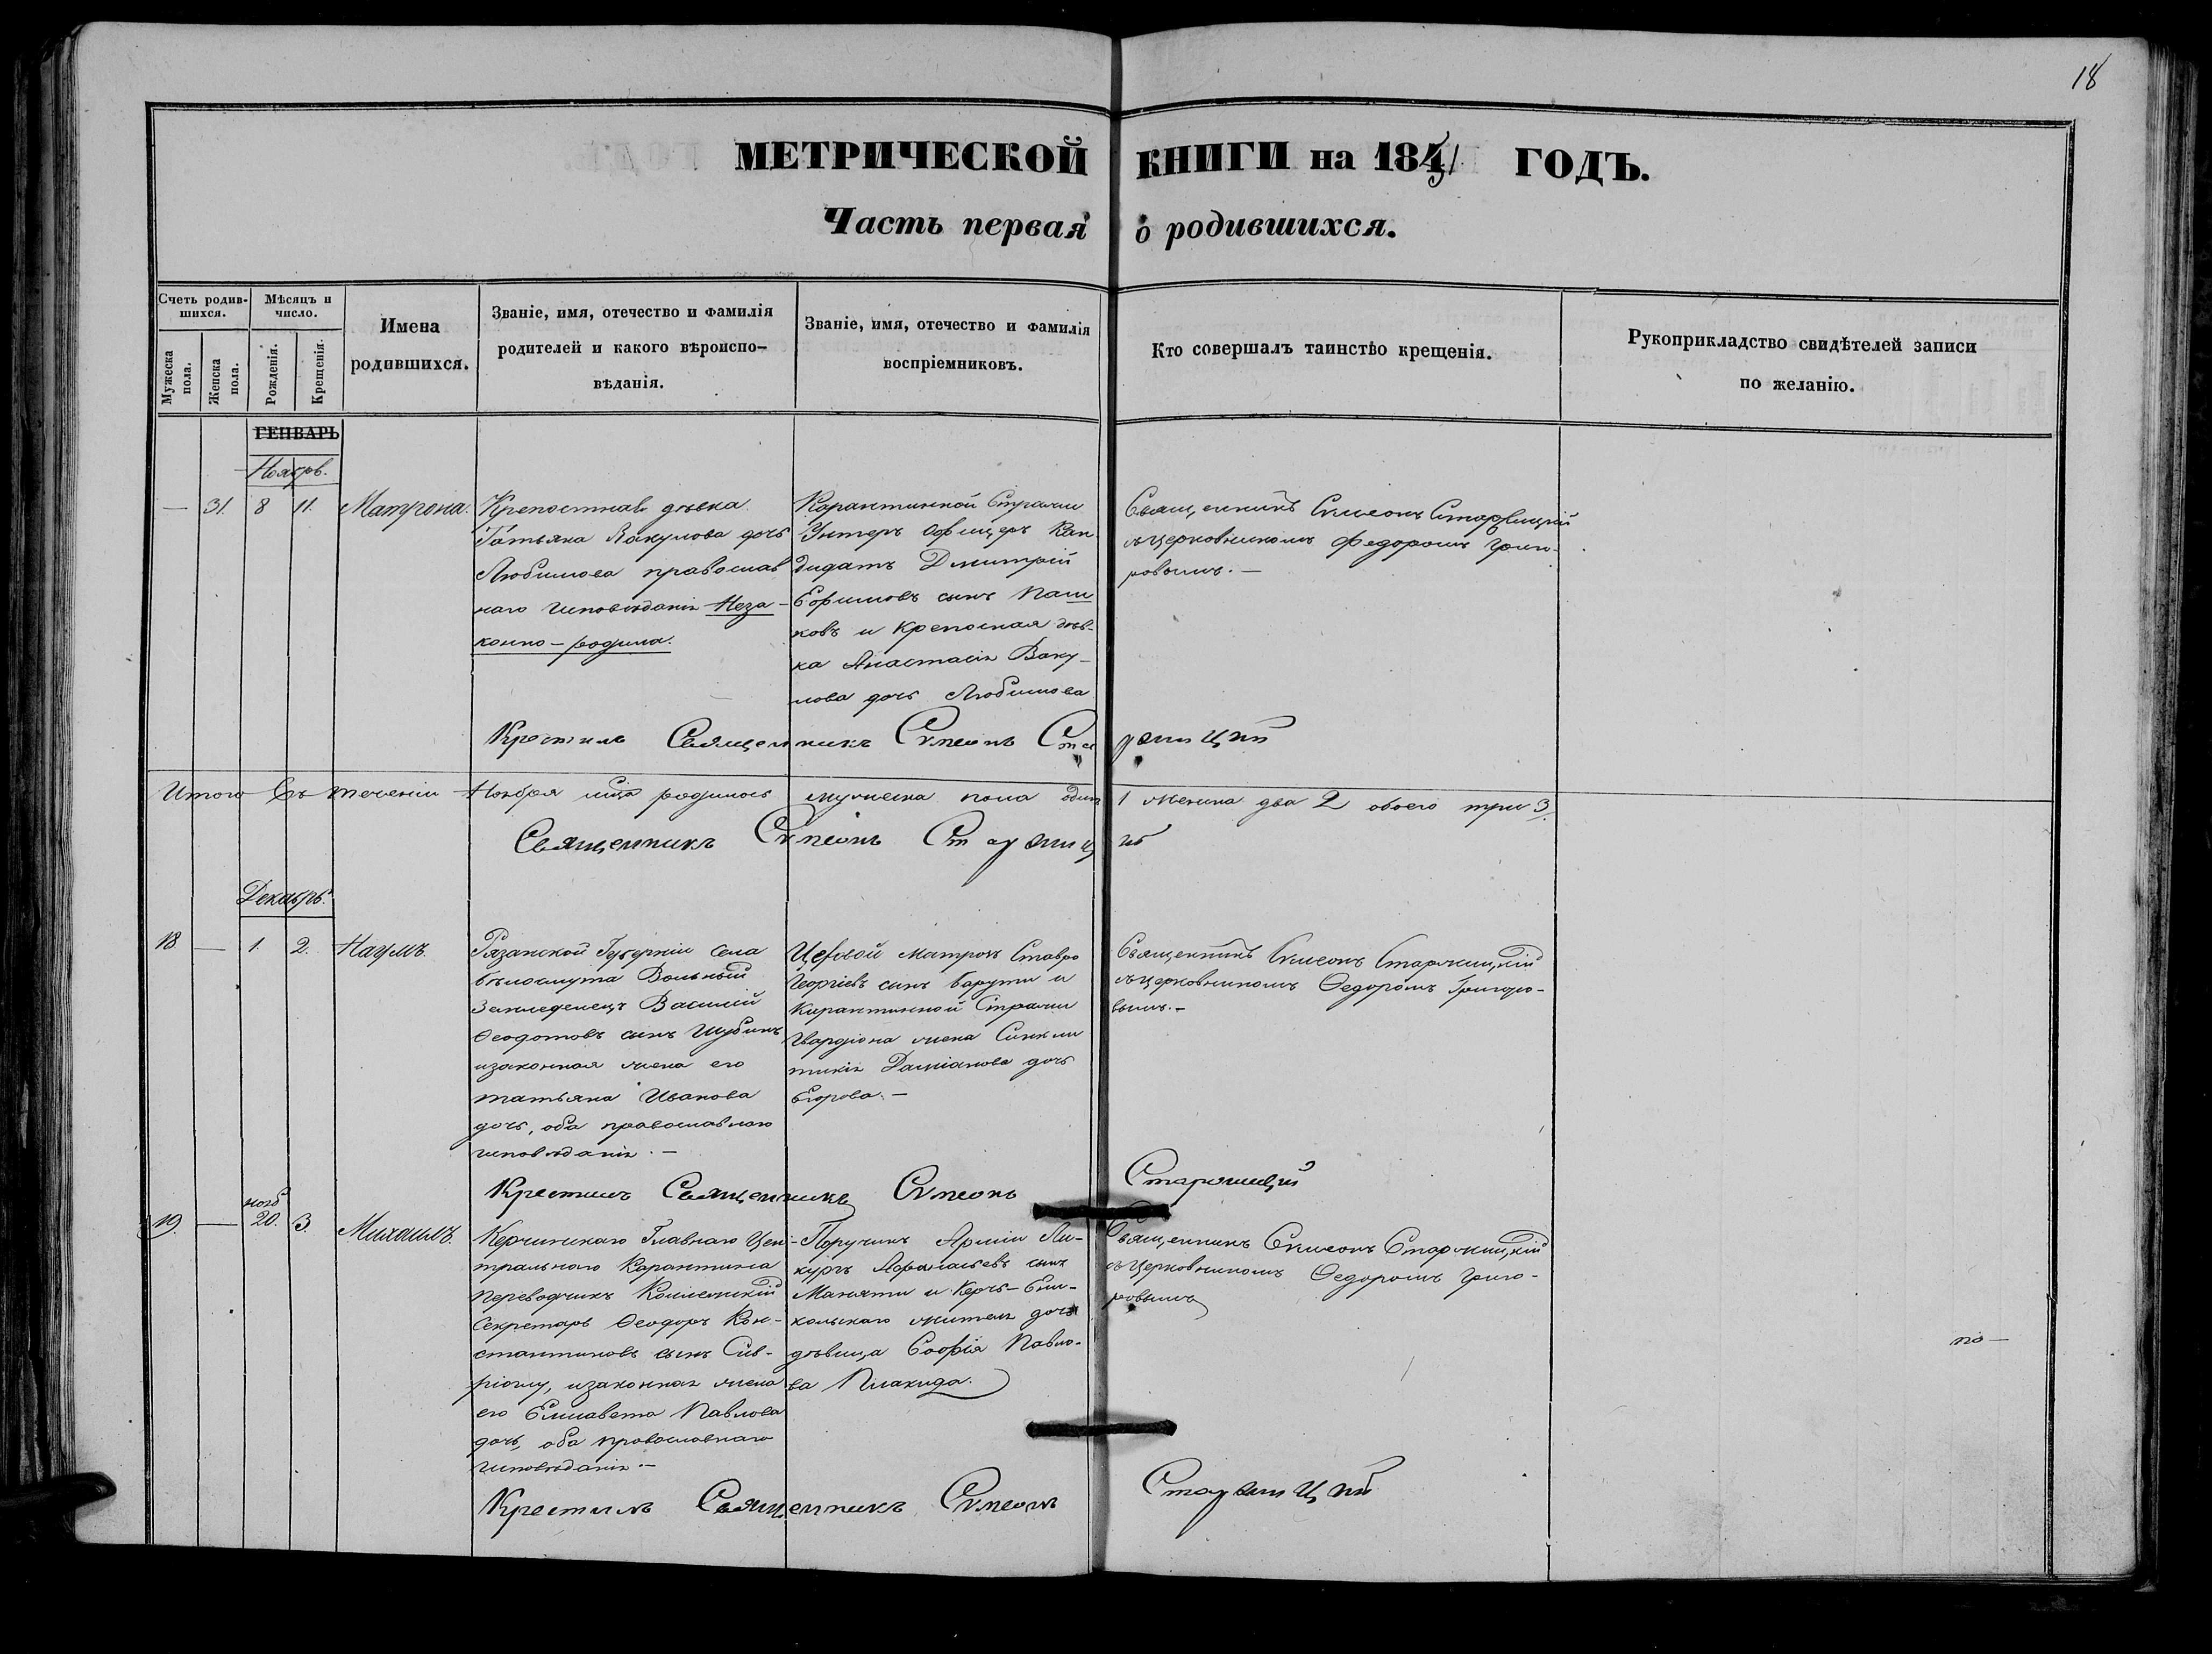 18
МЕТРИЧЕСКОЙ КНИГИ на 1851 ГОДЪ.
Часть первая о родившихся.
Счетъ родив-
шихся.
Мужеска
пола.
Женска
пола.
Мѣсяцъ и
число.
Рожденія.
Крещенія.
Имена
родившихся.
Званіе, имя, отечество и фамилія
родителей и какого вѣроиспо-
вѣданія.
Званіе, имя, отечество и фамилія
воспріемниковъ.
Кто совершалъ таинство крещенія.
Рукоприкладство свидѣтелей записи
по желанію.
ГЕНВАРЬ
Ноябрь.
— 31. 8 11. Матрона.
Крепостная дѣвка
Татьяна Вакулова дочь
Любимова православ
наго исповѣданія Неза-
конно-родила.
Карантинной Стражи
Унтеръ Офицеръ Кан-
дидатъ Дмитрій
Ефимовъ сынъ Паш
ковъ и Крепосная дѣв-
ка Анастасія Ваку-
лова дочь Любимова
Священникъ Симеонъ
съ церковникомъ Федоромъ Григо-
ровымъ.—
Крестилъ Священникъ Симеонъ
Итого въ теченіи Ноября мца родилось мужеска пола один 1 женска два 2 обоего три 3.
Священникъ Симеонъ
Декабрь.
18 — 1. 2. Наумъ.
Рязанской Губерніи села
Бѣлоомута Вольный
Земледелецъ Василій
Феодотовъ сынъ Шубинъ
изаконная жена его
татьяна Иванова
дочь, оба православнаго
исповѣданія.—
Цеховой Матрозъ Ставро
Георгіевъ сынъ Барути и
Карантинной Стражи
Гвардіона жена Синкли
тикія Даміанова дочь
Егорова.—
Священникъ Симеонъ Старжицкій
съ церковникомъ Ѳедоромъ Григоро-
вымъ.—
Крестилъ Священникъ Симеонъ Старжицкій
19. — нояб 20. 3. Михаилъ.
Керчинскаго Главнаго Цен-
тральнаго Карантина
переводчикъ Колежскій
Секретарь Ѳеодоръ Кон-
стантиновъ сынъ
изаконная жена
его Елисавета Павлова
дочь, оба православнаго
исповѣданія.—
Поручикъ Арміи Ли-
кургъ Афанасьевъ сынъ
Маняти и Керчь-Ени-
кольскаго жителя дочь
дѣвица Софія Павло-
ва Плакида.
Священникъ Симеонъ Старжицкій
съ Церковникомъ Ѳедоромъ Григо-
ровымъ
по—
Крестилъ Священникъ Симеонъ Старжицкій